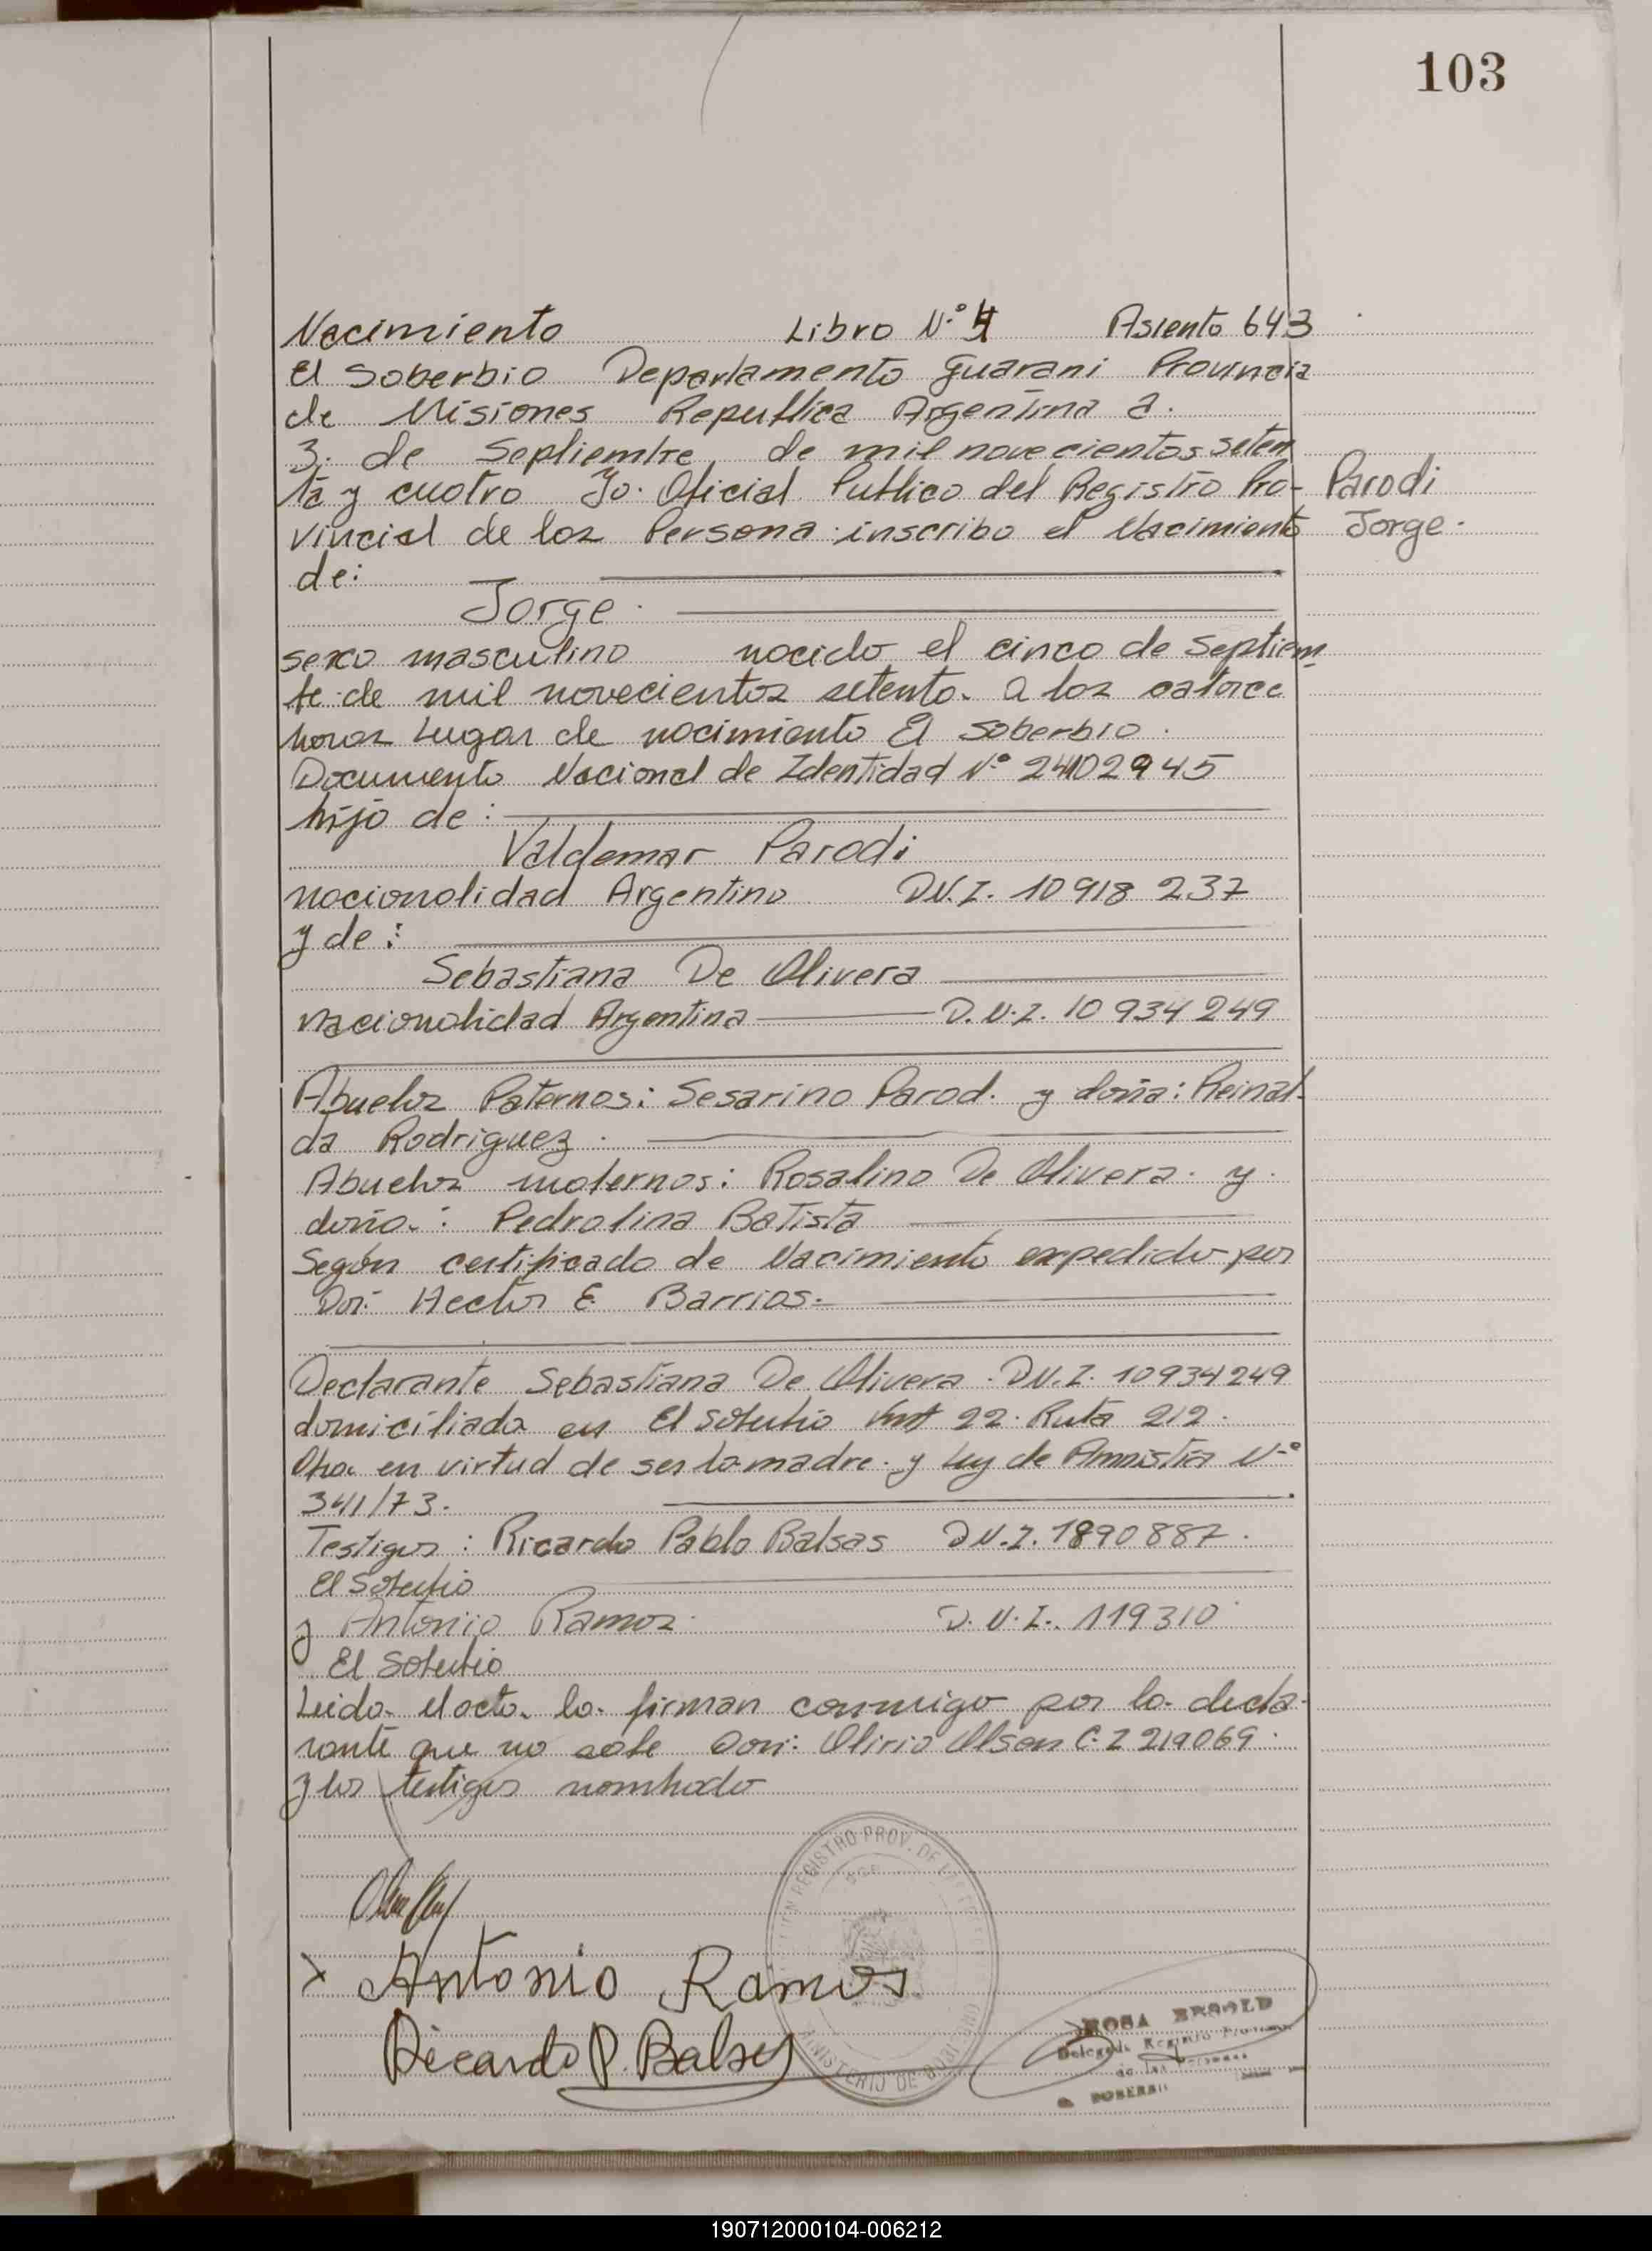 103
Nacimiento Libro N.° 4 Asiento 643
El Soberbio Departamento Guarani Provincia
de Misiones Republica Argentina a.
3. de Septiembre de mil novecientos seten
ta y cuatro Yo. Oficial Publico del Registro Pro-
vincial de las Persona inscribo el Nacimiento
de:
Parodi
Jorge.
Jorge.
sexo masculino nacido el cinco de Septiem
be de mil novecientos setenta. a las catorce
horas Lugar de nacimiento El Soberbio.
Documento Nacional de Identidad N° 24102945
hijo de:
Valdemar Parodi
nacionalidad Argentino D.N.I. 10 918 237
y de:
Sebastiana De Olivera
nacionalidad Argentina D.N.I. 10 934 249
Abuelos Paternos: Sesarino Parod. y doña: Reinal-
da Rodriguez.
Abuelos maternos: Rosalino De Olivera. y.
doña.: Pedrolina Batista
Según certificado de Nacimiento expedido por
Don: Hector E. Barrios.-
Declarante Sebastiana De Olivera. D.N.I. 10934249
domiciliada en El Soberbio 22. Ruta 212.
en virtud de ser la madre. y Ley de Amnistia N-°
341/73.
Testigos: Ricardo Pablo Balsas D.N.I. 1890887.
El Soberbio
y Antonio Ramos. D.N.I. 119310.
El Soberbio
Leida. el acta. la. firman conmigo por la. decla-
rante que no sabe Don: Olirio Olsen C.I 219069.
y los testigos nombrado
X Antonio Ramos
Ricardo P. Balsas
REGISTRO PROV. DE LAS
MINISTERIO DE GOBIERNO
ROSA
Delegada Registro Provincial
de las Personas
EL SOBERBIO
190712000104-006212